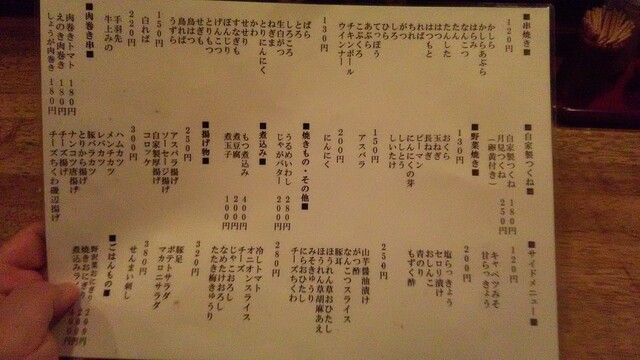 ■串焼き■
120円
かしら
かしらあぶら
はらみ
なんこつ
たん
たんした
はつ
はつもと
ればー
がつ
しろ
ひも
てっぽう
あぶら
こぶくろ
チートボール
ウインナー
130円
ばら
しろころ
生白がつ
ねぎま
とりにんにく
かわ
せせり
すなぎも
ぼんじり
げんこつ
とりもつ
せぎも
鳥はつ
鳥れば
うずら
150円
白れば
220円
手羽先
牛上みの
■肉巻き串■
肉巻きトマト 180円
えのき肉巻き 180円
しょうが肉巻き 180円
■自家製つくね■
自家製つくね 180円
月見つくね 250円
(卵黄付き)
■野菜焼き■
130円
おくら
玉ねぎ
長ねぎ
ピーマン
にんにくの芽
ししとう
しいたけ
150円
アスパラ
200円
にんにく
■焼きもの・その他■
うるめいわし 280円
じゃがバター 200円
■煮込み■
もつ煮込み 400円
煮豆腐 200円
煮玉子 100円
■揚げ物■
250円
アスパラ揚げ
ソーセージ揚げ
自家製厚揚げ
コロッケ
300円
ハムカツ
メンチカツ
レバカツ
豚バラカツ
とりから揚げ
ナンコツ唐揚げ
チーズ揚げ
チーズちくわ磯辺揚げ
■サイドメニュー■
120円
キャベツみそ
甘らっきょう
200円
塩らっきょう
セロリ漬け
おしんこ
青のり
もずく酢
250円
山芋醤油漬け
がつ酢
なんこつスライス
豚耳
ほうれん草おひたし
ほうれん草胡麻あえ
みそきゅうり
にらおひたし
チーズちくわ
280円
冷しトマト
オニオンスライス
じゃこおろし
なめたけおろし
たたき梅きゅうり
320円
豚足
ポテトサラダ
マカロニサラダ
380円
せんまい刺し
■ごはんもの■
野沢菜おにぎり 200円
焼きおにぎり 200円